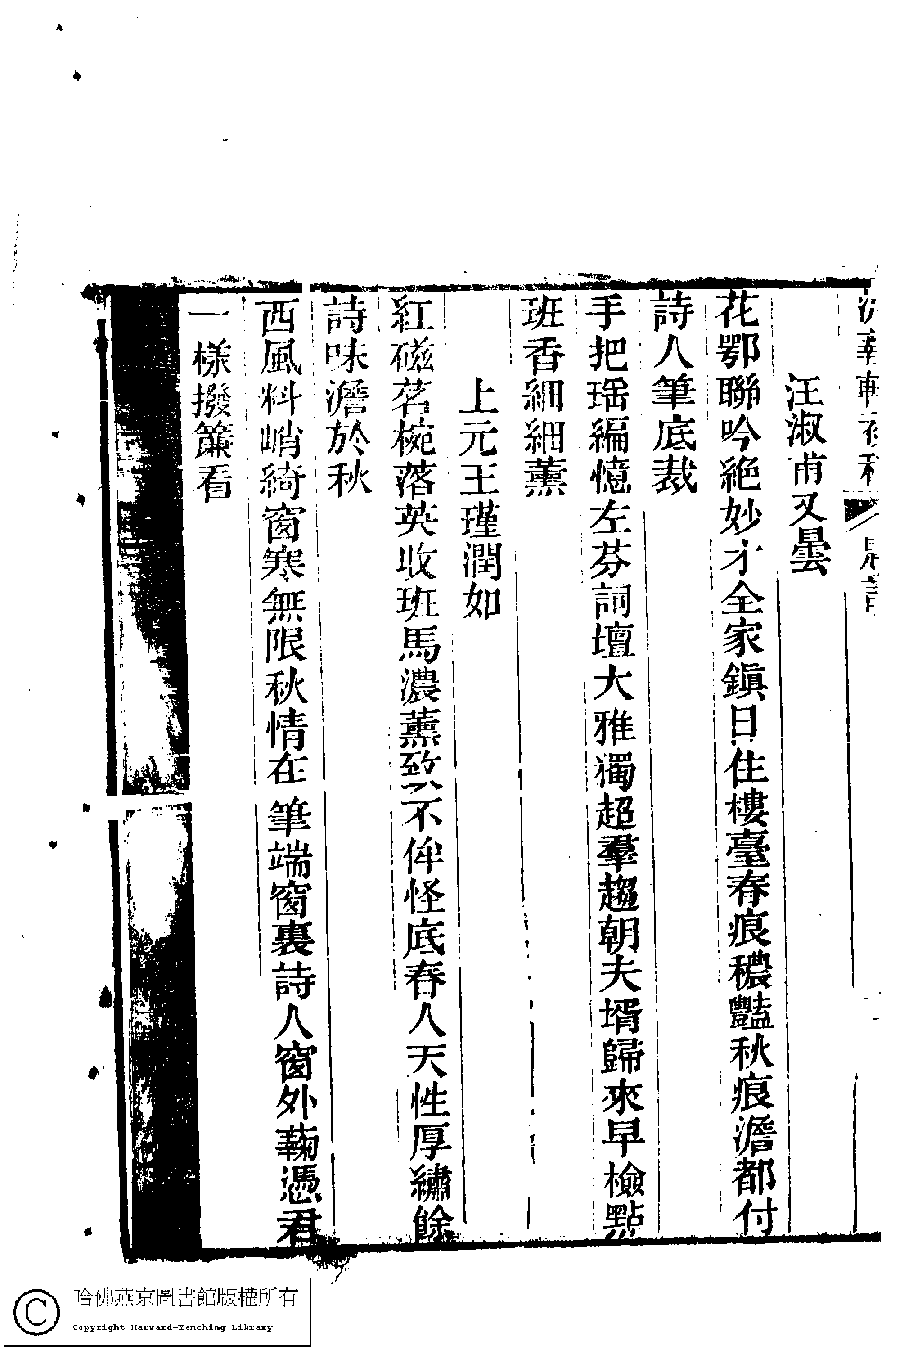 汪淑甫又曇
花鄂聯吟絕妙才全家鎮日住樓臺春痕穠豔秋痕澹都付
詩人筆底裁
手把瑶編憶左芬詞壇大雅獨超羣趨朝夫壻歸來早檢點
班香細細薰
上元王瑾潤如
紅磁茗椀落英收班馬濃薰致不侔怪底春人天性厚繡餘
詩味澹於秋
西風料峭綺窗寒無限秋情在筆端窗裏詩人窗外蘜憑君
一樣撥簾看
哈佛燕京圖書館版權所有
Copyright Harvard-Yenching Library